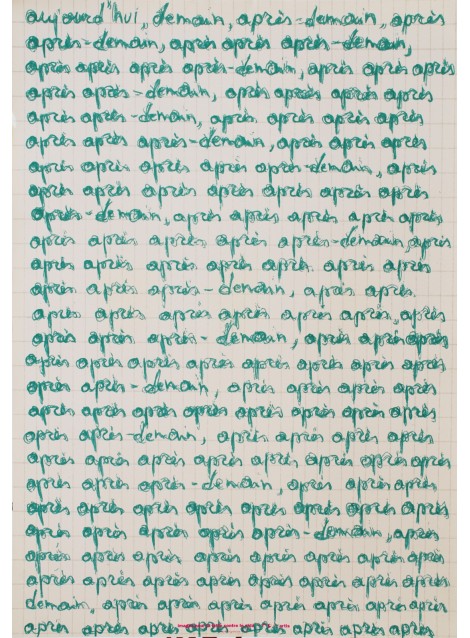 aujourd'hui, demain, après-demain, après
après-demain, après après après-demain,
après après après après-demain, après après après
après après-demain, après après après après
après après-demain, après après après après
après après après-demain, après après après
après après après après après-demain, après
après après après après après après après après
après-demain, après après après après après
après après après après après-demain, après
après après après après après après après
après après après-demain, après après.
après après après après après après, après
après après après-demain, après après après
après après après après après après après après
après après-demain, après après après après
après après après après après après après après
après après-demain, après après après après
après après après après après après après après
après après après-demain, après après après
après après après après après après après après
après après après après après-demain, après
après après après après après après après après
après après après après après après après après
demain, après après après après après après
après après après après après après après après